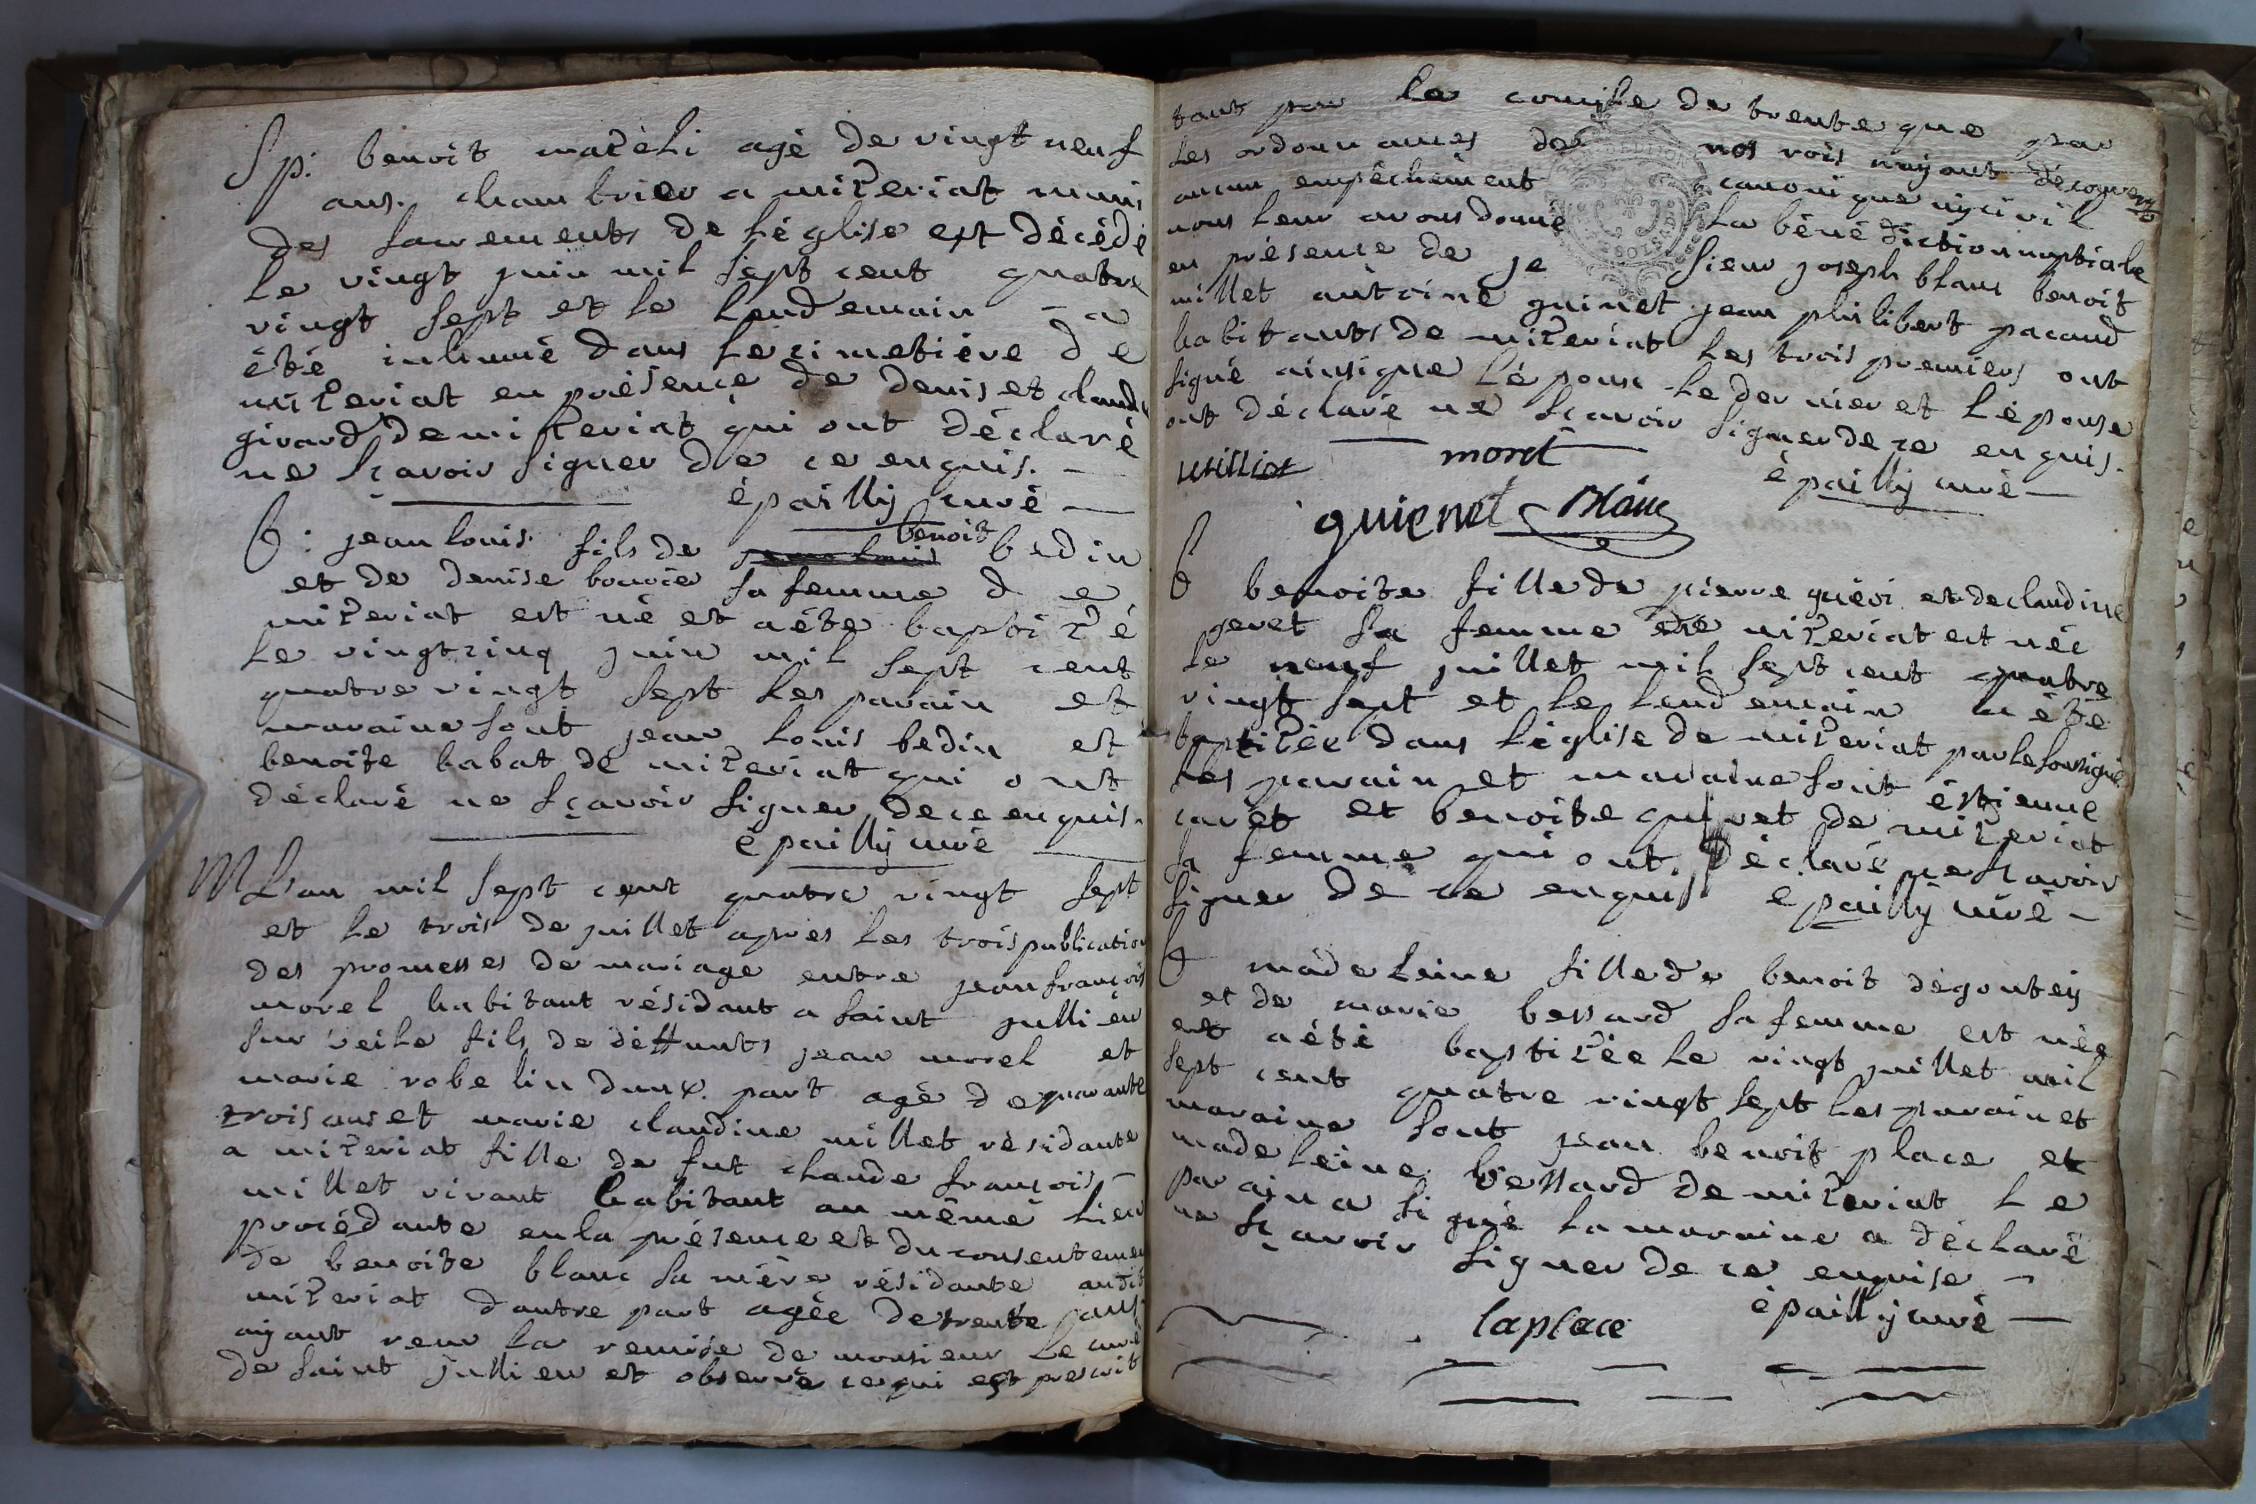 Sp: benoit mazèli agé de vingt neuf
ans. chambrier a mizeriat muni
des sacrements de l'église est décédé
le vingt juin mil sept cent quatre
vingt sept et le lendemain - a
été inhumé dans le cimetière de
mizeriat en présence de denis et claude
girard de mizeriat qui ont déclaré
ne sçavoir signer de ce enquis. —
épailly curé —
B: jean louis fils de benoit bedin
et de denise bouvie sa femme de
mizeriat est né et a été baptizé
le vingt cinq juin mil sept cent
quatre vingt sept les parain et
maraine sont jean louis bedin et
benoite babat de mizeriat qui ont
déclaré ne sçavoir signer de ce enquis.
épailly curé
M L'an mil sept cent quatre vingt sept
et le trois de juillet après les trois publication
des promesses de mariage entre jean françois
morel habitant résidant a saint jullien
sur veile fils de deffunts jean morel et
marie robelin d'un part agé de quarante
trois ans et marie claudine millet résidante
a mizeriat fille de fut claude françois
millet vivant habitant au même lieu
procédante en la présence et du consentemen
de benoite blanc sa mère résidante audit
mizeriat d'autre part agée de trente ans
aÿant reçu la remise de monsieur le curé
de saint jullien et observé ce qui est prescrit
tant par le concile de trente que par
les ordonnances de nos rois n'ayant découvert
aucun empêchement canonique ny civil
nous leur avons donné la bénédiction nuptiale
en présence de sieur joseph blanc benoit
millet antoine guinet jean philibert pacaud
habitants de mizeriat les trois premiers ont
signé ainsi que l'époux le dernier et l'épouse
ont déclaré ne sçavoir signer de ce enquis.
millet morel épailly curé —
guienet Blanc
B benoite fille de pierre guéri et de claudine
geret sa femme de mizeriat est née
le neuf juillet mil sept cent quatre
vingt sept et le lendemain a été
baptizée dans l'église de mizeriat par le soussigné
les parain et maraine sont éstienne
caret et benoite de mizeriat
sa femme qui ont déclaré ne sçavoir
signer de ce enquis épailly curé —
B madeleine fille de benoit dégoutey
et de marie bessard sa femme est née
et a été baptizée le vingt juillet mil
sept cent quatre vingt sept les parain et
maraine sont jean benoit place et
madeleine bessard de mizeriat le
parain a signé la maraine a déclaré
ne sçavoir signer de ce enquise —
laplace épailly curé —